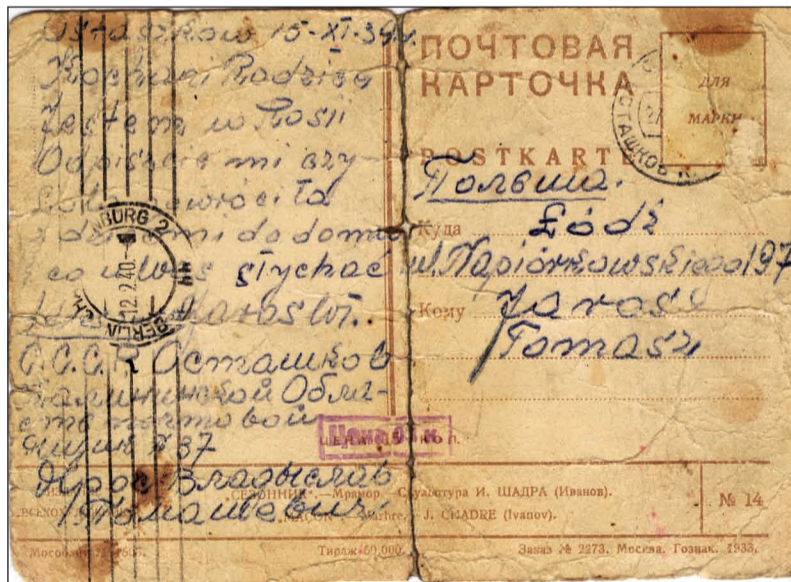 Ostaszków 15-XI-39 r.
Kochani Rodzice
Jestem w Rosii
Odpiszcie mi czy
powróciła
z dziećmi do domu
co u Was słychać
Jaros Wł.
С.С.С.Р. Осташков
Калининской Обла-
сть почтовой
ящик № 37
Ярос Владыслав
Томашевич.
ПОЧТОВАЯ
КАРТОЧКА
POSTKARTE
ДЛЯ
МАРКИ
ОСТАШКОВ
Польша.
Куда Łódź
ul. Napiórkowskiego 197
Кому Jarosz
Tomasz
BERLIN
12.2.40
Цена
„СЕЗОННИК“.—Мрамор. Скульптура И. ШАДРА (Иванов).
„MAÇON“. Marbre. J. CHADRE (Ivanov).
№ 14
Тираж 50.000.
Заказ № 2273. Москва. Гознак. 1933.